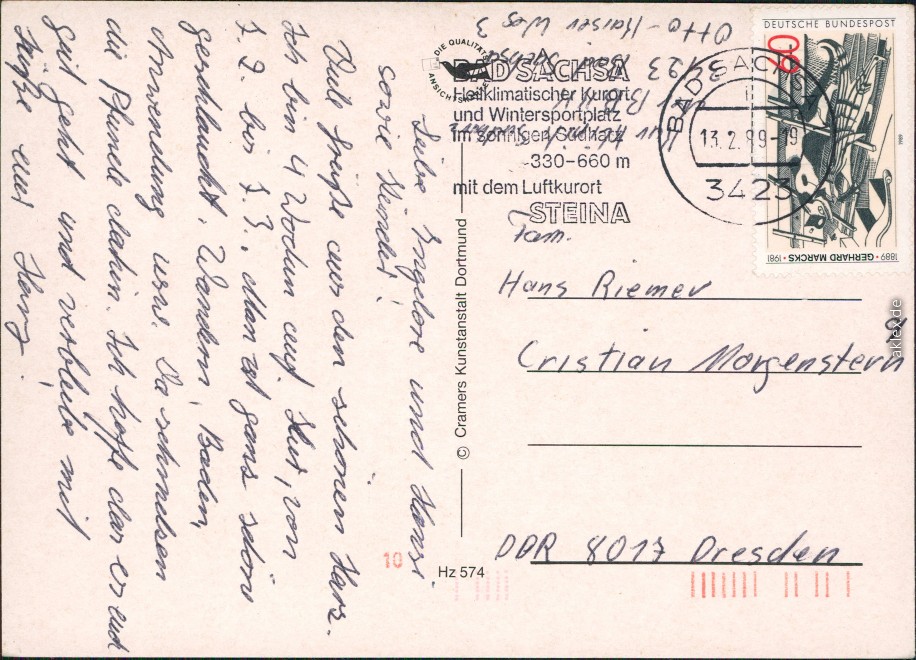 Liebe Ingelore und Hansi,
sowie Kinder!
Viele Grüße aus den schönen Harz.
Ich bin 4 Wochen auf Kur, von
7. 2. bis 7. 3., dan ist ganz schön
geschlaucht. Wandern, Baden,
Anwendung usw. Da schmelzen
die Pfunde dahin. Ich hoffe das es euch
gut geht und verbleibe mit
Grüße euer
Otto-Kaiser Weg 3
3423 Bad Sachsa
DIE QUALITÄTS
ANSICHTSKARTE
BAD SACHSA
Heilklimatischer Kurort
und Wintersportplatz
im sonnigen Südharz
330-660 m
mit dem Luftkurort
STEINA
BAD SACHSA
13.2.89-19
3423
DEUTSCHE BUNDESPOST
60
1989
1889 · GERHARD MARCKS · 1981
Fam.
Hans Riemer
Cristian Morgenstern
DDR 8017 Dresden
© Cramers Kunstanstalt Dortmund
Hz 574
10
aklex.de